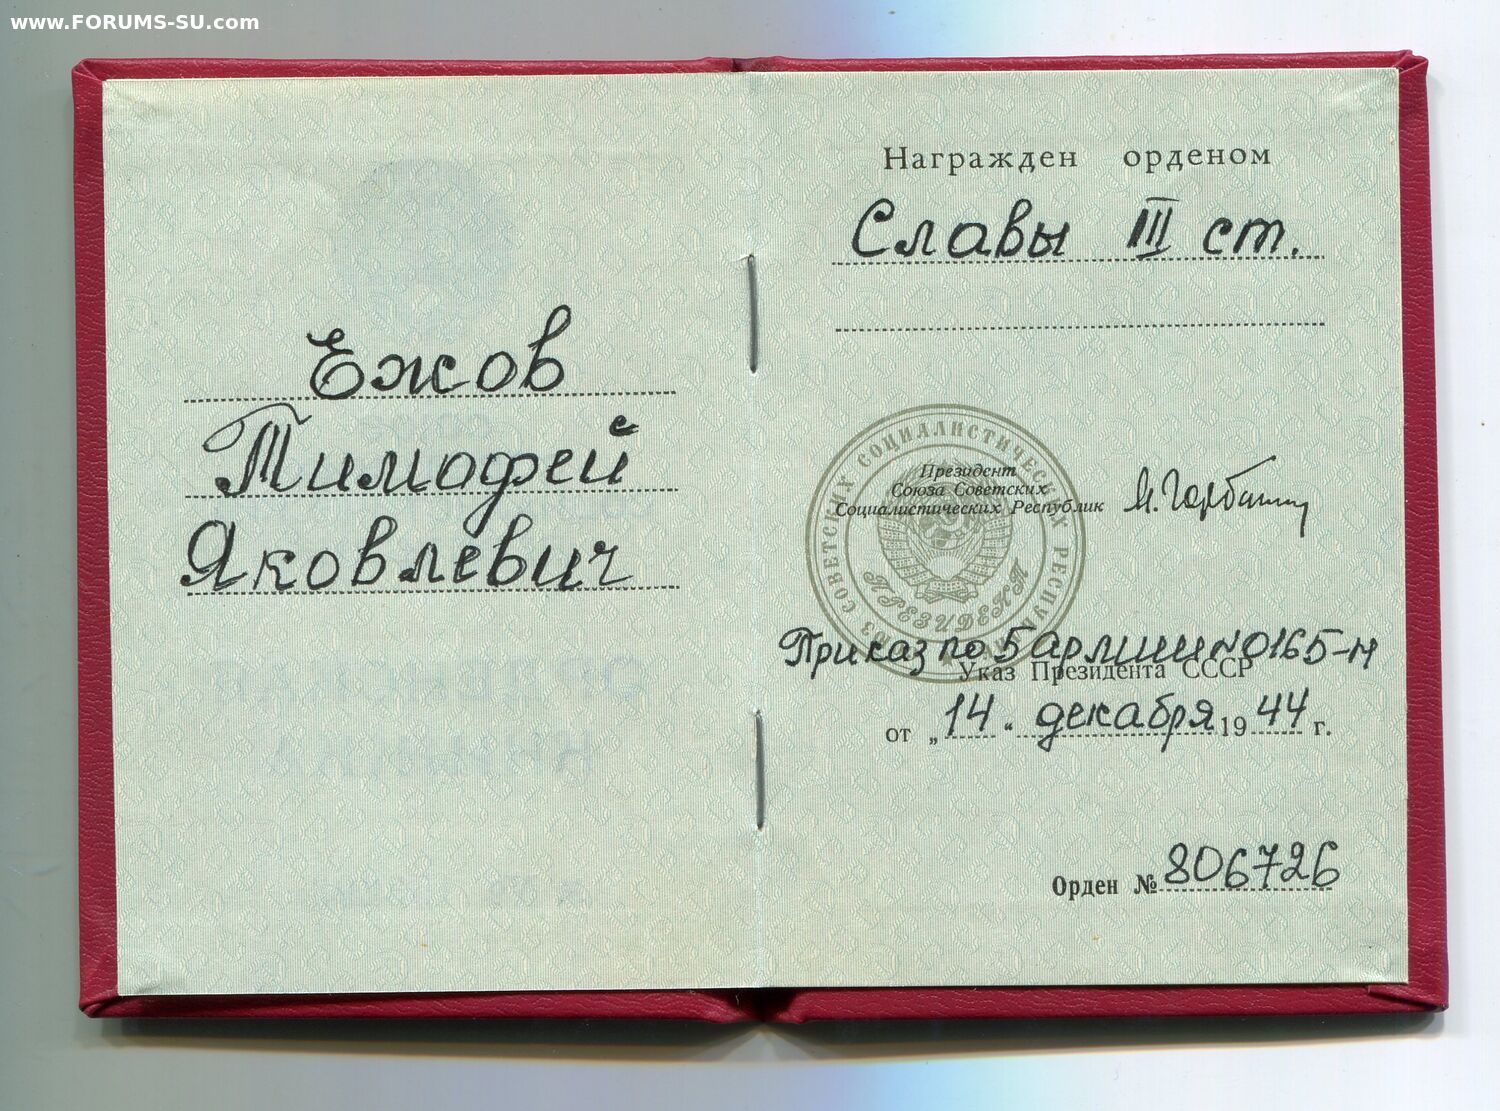 www.FORUMS-SU.com
Ежов
Тимофей
Яковлевич
Награжден орденом
Славы III ст.
СОЮЗ СОВЕТСКИХ СОЦИАЛИСТИЧЕСКИХ РЕСПУБЛИК
ПРЕЗИДЕНТ
Президент
Союза Советских
Социалистических Республик М. Горбачев
Приказ по 5 армии №0165-н
Указ Президента СССР
от „14“ декабря 1944 г.
Орден № 806726